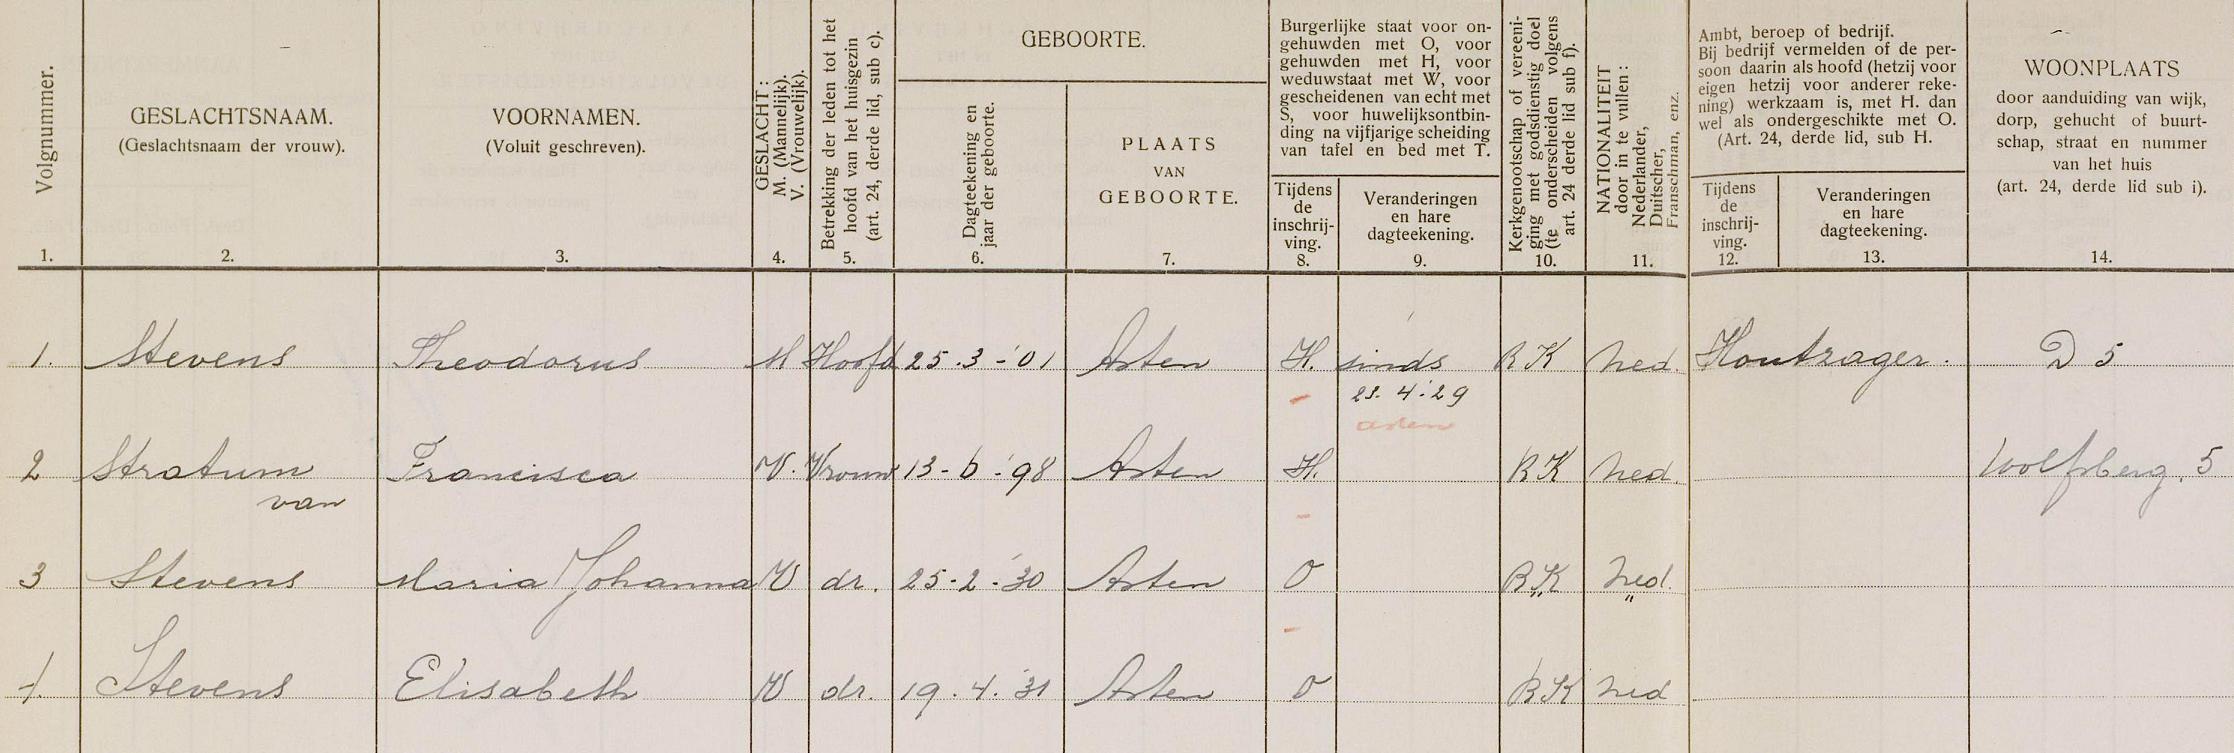 Volgnummer.
1.
GESLACHTSNAAM.
(Geslachtsnaam der vrouw).
2.
VOORNAMEN.
(Voluit geschreven).
3.
GESLACHT:
M. (Mannelijk).
V. (Vrouwelijk).
4.
Betrekking der leden tot het
hoofd van het huisgezin
(art. 24, derde lid, sub c).
5.
GEBOORTE.
Dagteekening en
jaar der geboorte.
6.
PLAATS
VAN
GEBOORTE.
7.
Burgerlijke staat voor on-
gehuwden met O, voor
gehuwden met H, voor
weduwstaat met W, voor
gescheidenen van echt met
S, voor huwelijksontbin-
ding na vijfjarige scheiding
van tafel en bed met T.
Tijdens
de
inschrij-
ving.
8.
Veranderingen
en hare
dagteekening.
9.
Kerkgenootschap of vereeni-
ging met godsdienstig doel
(te onderscheiden volgens
art. 24 derde lid sub f).
10.
NATIONALITEIT
door in te vullen:
Nederlander,
Duitscher,
Franschman, enz.
11.
Ambt, beroep of bedrijf.
Bij bedrijf vermelden of de per-
soon daarin als hoofd (hetzij voor
eigen hetzij voor anderer reke-
ning) werkzaam is, met H. dan
wel als ondergeschikte met O.
(Art. 24, derde lid, sub H.
Tijdens
de
inschrij-
ving.
12.
Veranderingen
en hare
dagteekening.
13.
WOONPLAATS
door aanduiding van wijk,
dorp, gehucht of buurt-
schap, straat en nummer
van het huis
(art. 24, derde lid sub i).
14.
1. Stevens Theodorus M Hoofd 25-3-'01 Asten H. sinds R K Ned. Houtzager. D 5
23-4-'29
asten
2 Stratum Francisca V. Vrouw 13-6-'98 Asten H. R K Ned. Wolfsberg. 5
van
3 Stevens Maria Johanna V dr. 25-2-'30 Asten O R K Ned.
" "
4. Stevens Elisabeth V dr. 19.4.'31 Asten O R K Ned